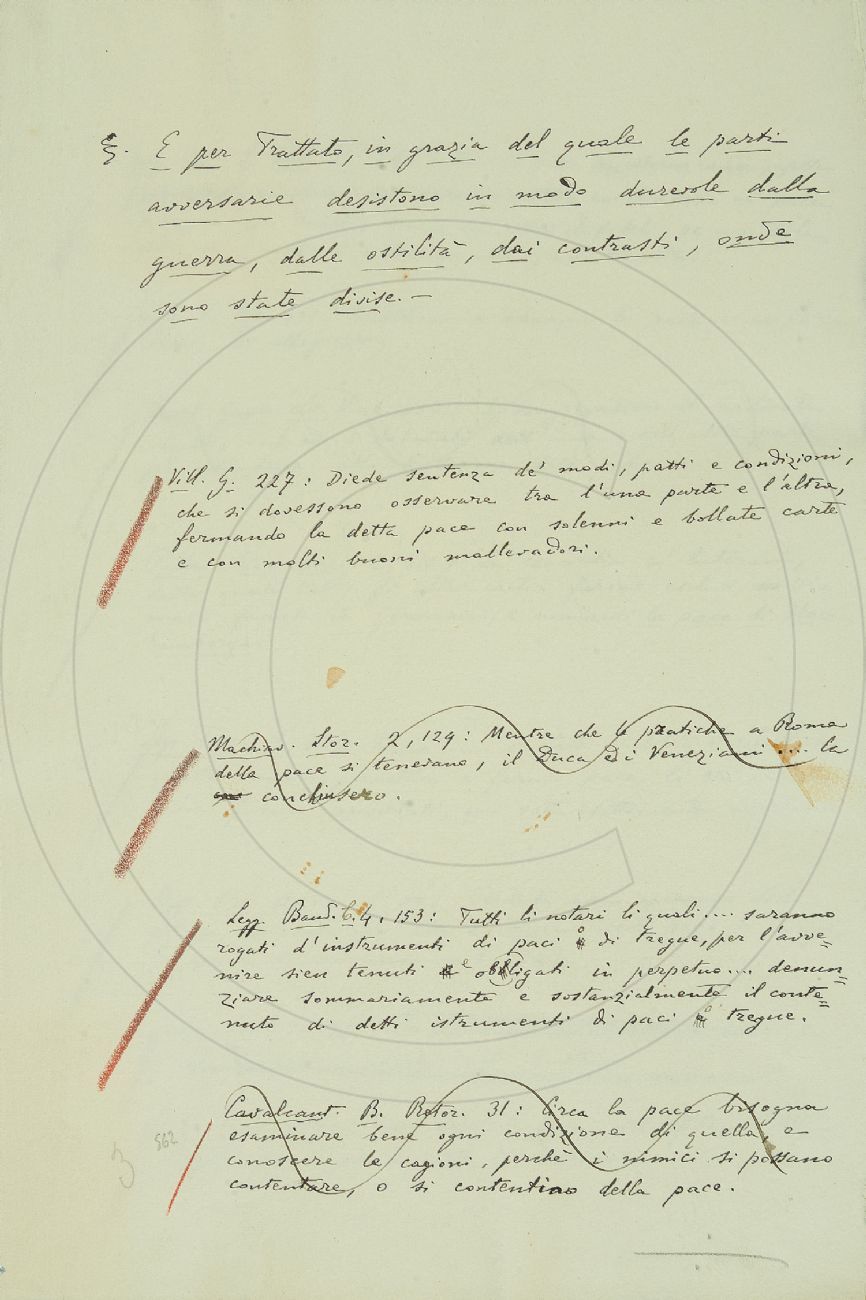 ξ. E per Trattato, in grazia del quale le parti
avversarie desistono in modo durevole dalla
guerra, dalle ostilità, dai contrasti, onde
sono state divise. —
Vill. G. 227: Diede sentenza de' modi, patti e condizioni,
che si dovessono osservare tra l'una parte e l'altra,
fermando la detta pace con solenni e bollate carte
e con molti buoni mallevadori.
Machiav. Stor. 2, 129: Mentre che le pratiche a Roma
della pace si tenevano, il Duca e i Veneziani .... la
conchiusero.
Legg. Band. C. 4, 153: Tutti li notari li quali .... saranno
rogati d'instrumenti di paci o di tregue, per l'avve=
nire sien tenuti e obbligati in perpetuo .... denun=
ziare sommariamente e sostanzialmente il conte=
nuto di detti istrumenti di paci o tregue.
Cavalcant. B. Retor. 31: Circa la pace bisogna
esaminare bene ogni condizione di quella, e
conoscere le cagioni, perchè i nimici si possano
contentare, o si contentino della pace.
562
3